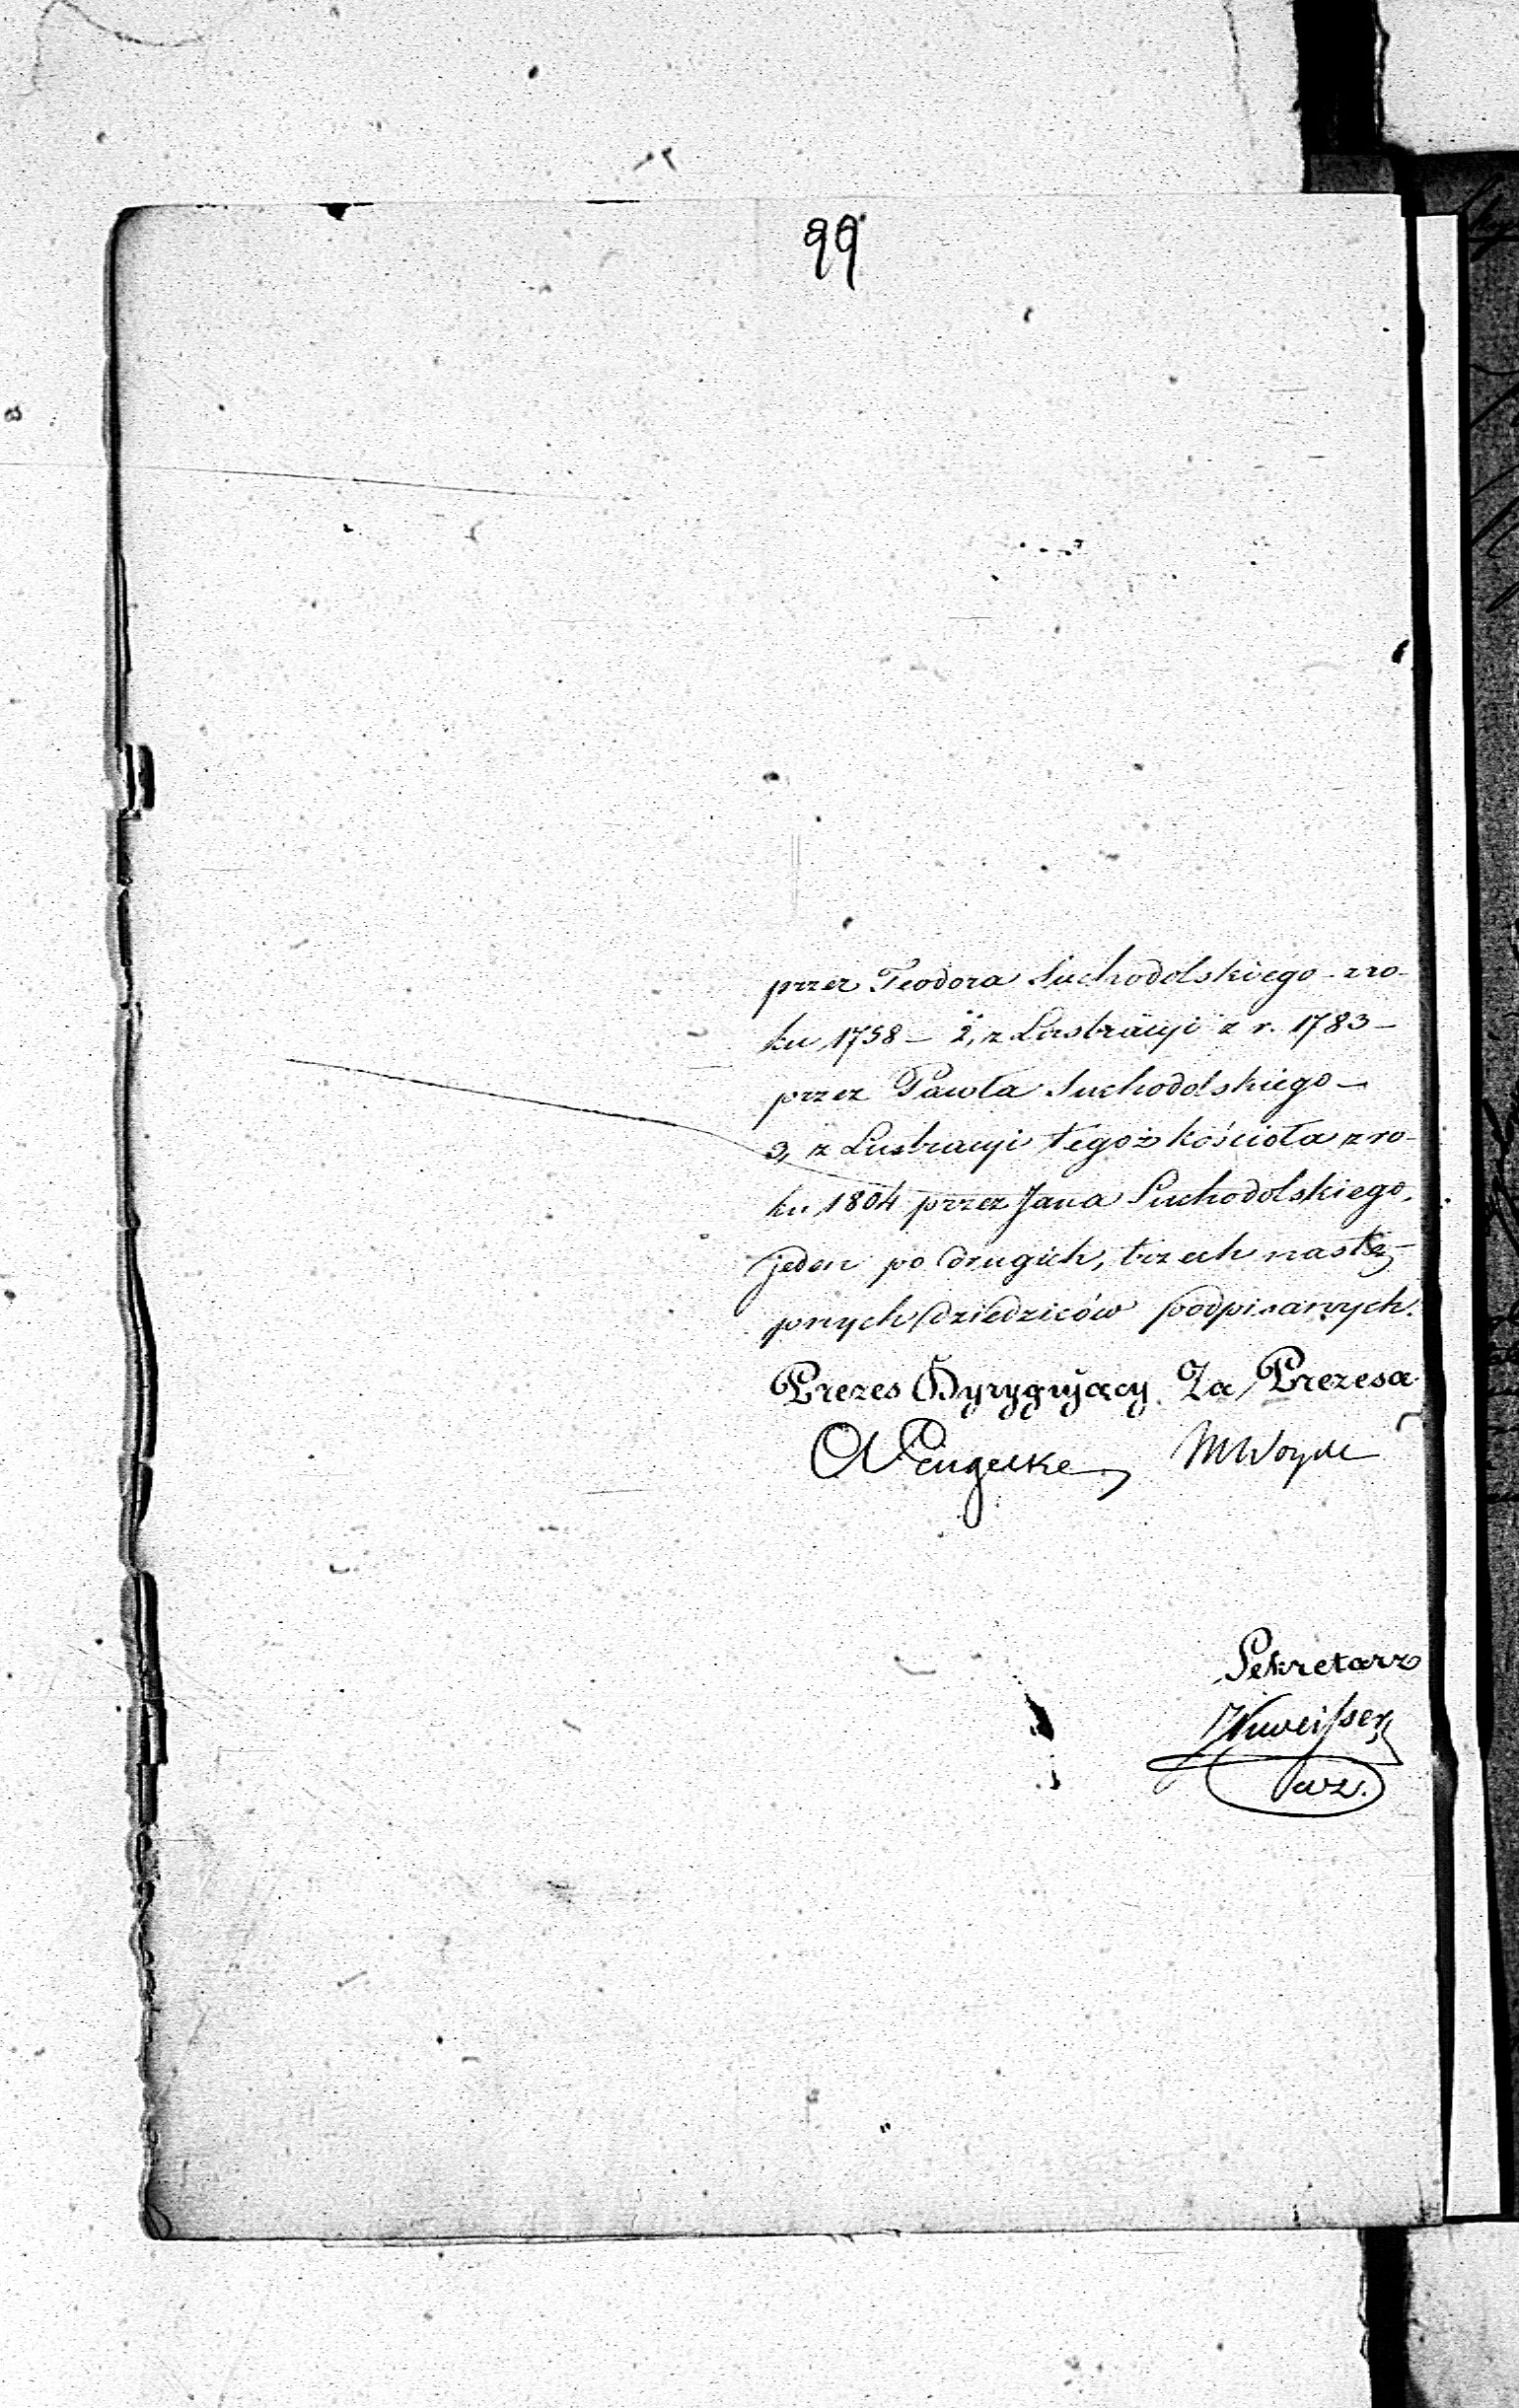 99
przez Teodora Suchodolskiego - z ro-
ku 1758 - 2, z Lustracyi z r. 1783 -
przez Pawła Suchodolskiego -
3, z Lustracyi tegoż kościoła z ro-
ku 1804 przez Jana Suchodolskiego,
jeden po drugich, trzech nastę-
pnych dziedziców podpisanych.
Prezes Dyrygujący. Za Prezesa
Sekretarz